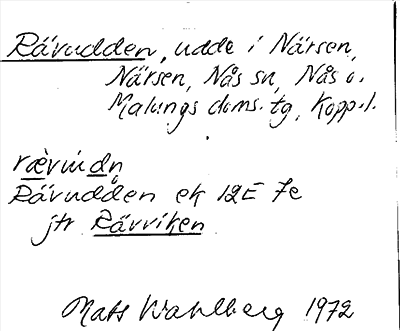 Rävudden, udde i Närsen,
Närsen, Nås sn, Nås o.
Malungs doms. tg, Kopp.l.
rævùdn
Rävudden ek 12E 7e
jfr Rävviken
Mats Wahlberg 1972